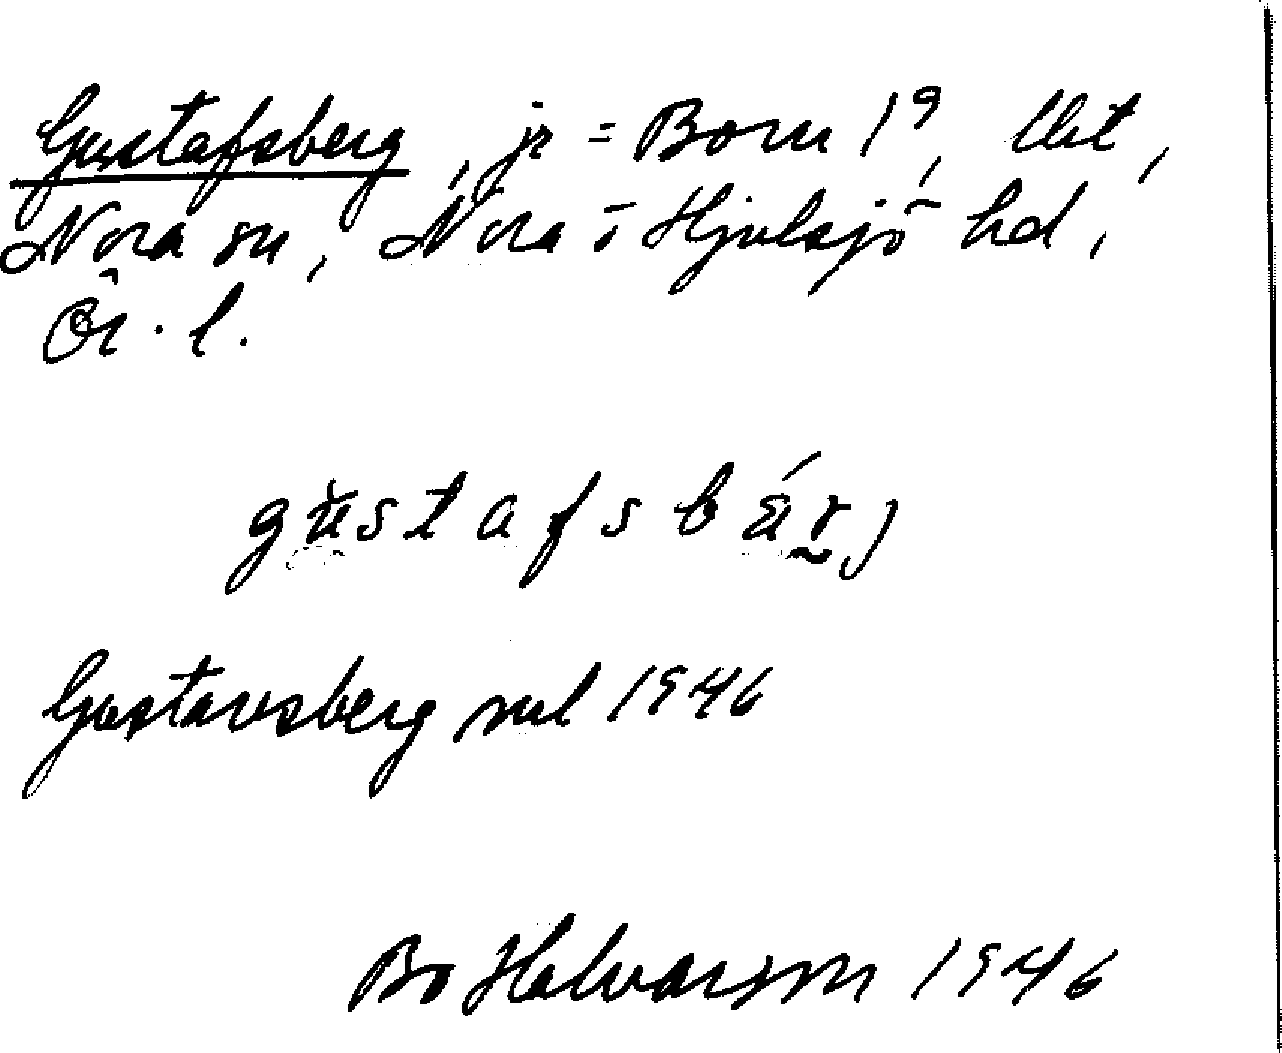 Gustafsberg, jr = Born 1⁹, lht,
Nora sn, Nora o Hjulsjö hd,
Ör. l.
gustafsbärj
Gustavsberg sml 1946
Bo Halvarson 1946